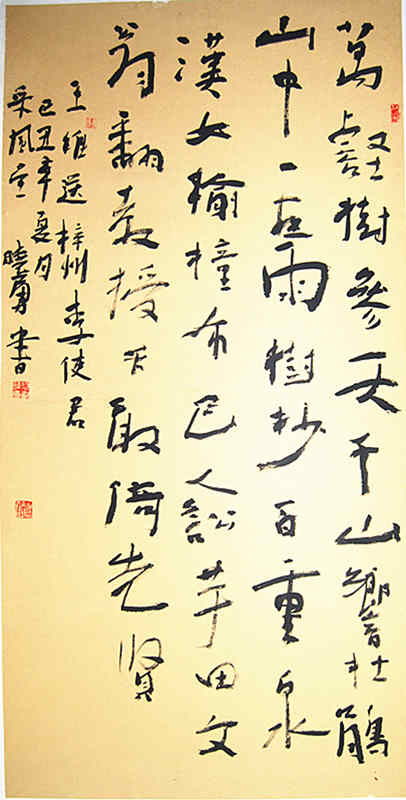 萬壑樹參天千山響杜鵑
山中一夜雨樹杪百重泉
漢女輸橦布巴人訟芋田文
翁翻教授不敢倚先賢
王維送梓州李使君
己丑年夏月
采風 書